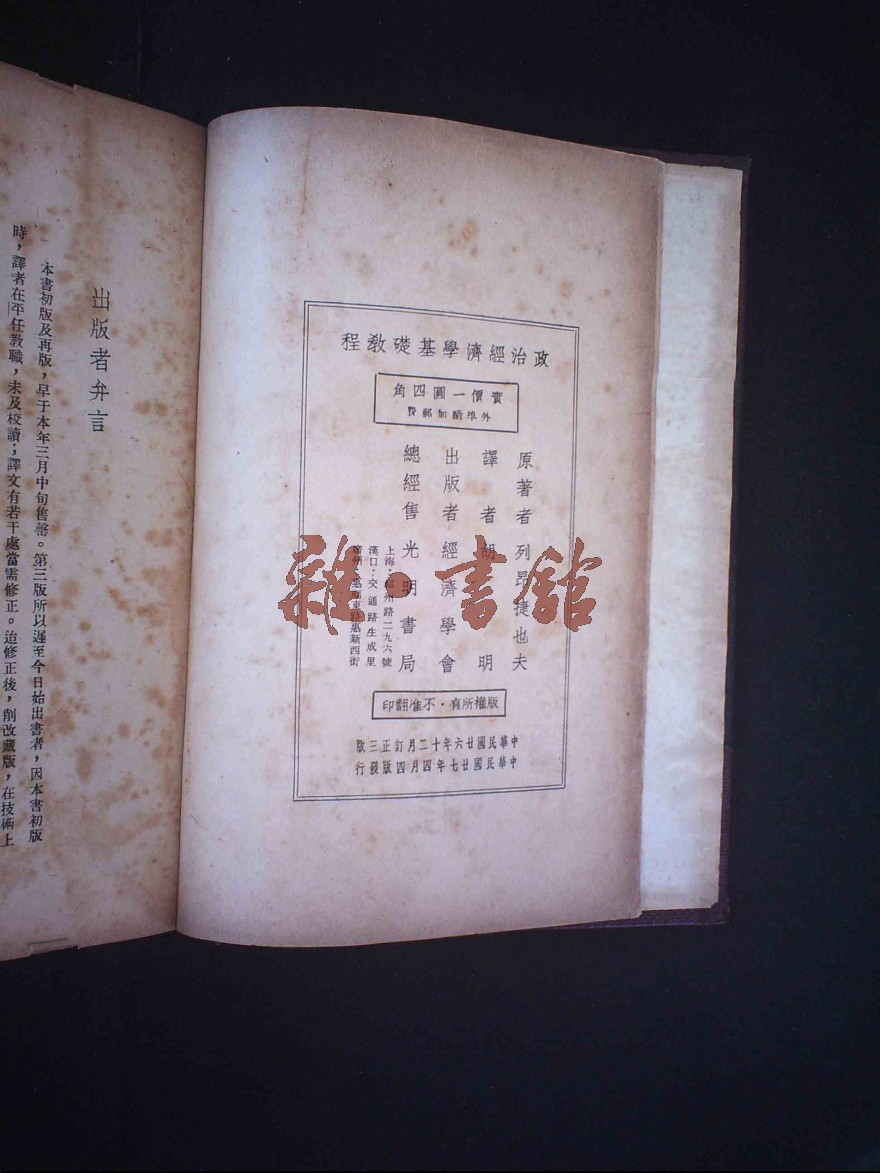 政治經濟學基礎教程
實價一圓四角
外埠酌加郵費
原著者 列昂捷也夫
譯者 胡明
出版者 經濟學會
總經售 光明書局
上海·福州路二九六號
漢口·交通路生成里
廣州·惠愛東路惠新西街
版權所有·不准翻印
中華民國廿六年十二月訂正三版
中華民國廿七年四月四版發行
出版者弁言
本書初版及再版，早于本年三月中旬售罄。第三版所以遲至今日始出書者，因本書初版
時，譯者在平任教職，未及校讀；譯文有若干處當需修正。迨修正後，削改藏版，在技術上
雜·書館